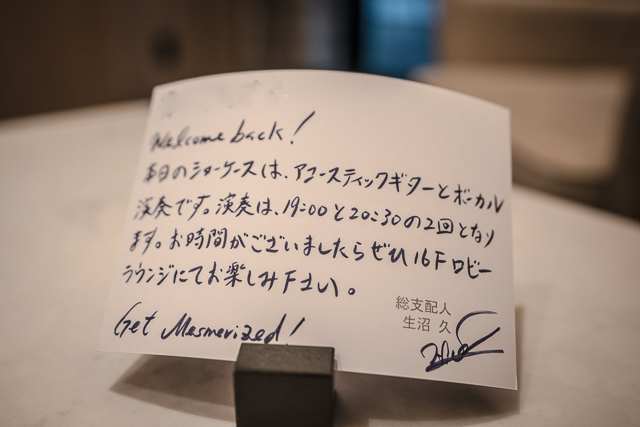 Welcome back!
本日のショーケースは、アコースティックギターとボーカル
演奏です。演奏は、19:00と20:30の2回となり
ます。お時間がございましたらぜひ16Fロビー
ラウンジにてお楽しみ下さい。
Get Mesmerized!
総支配人
生沼 久